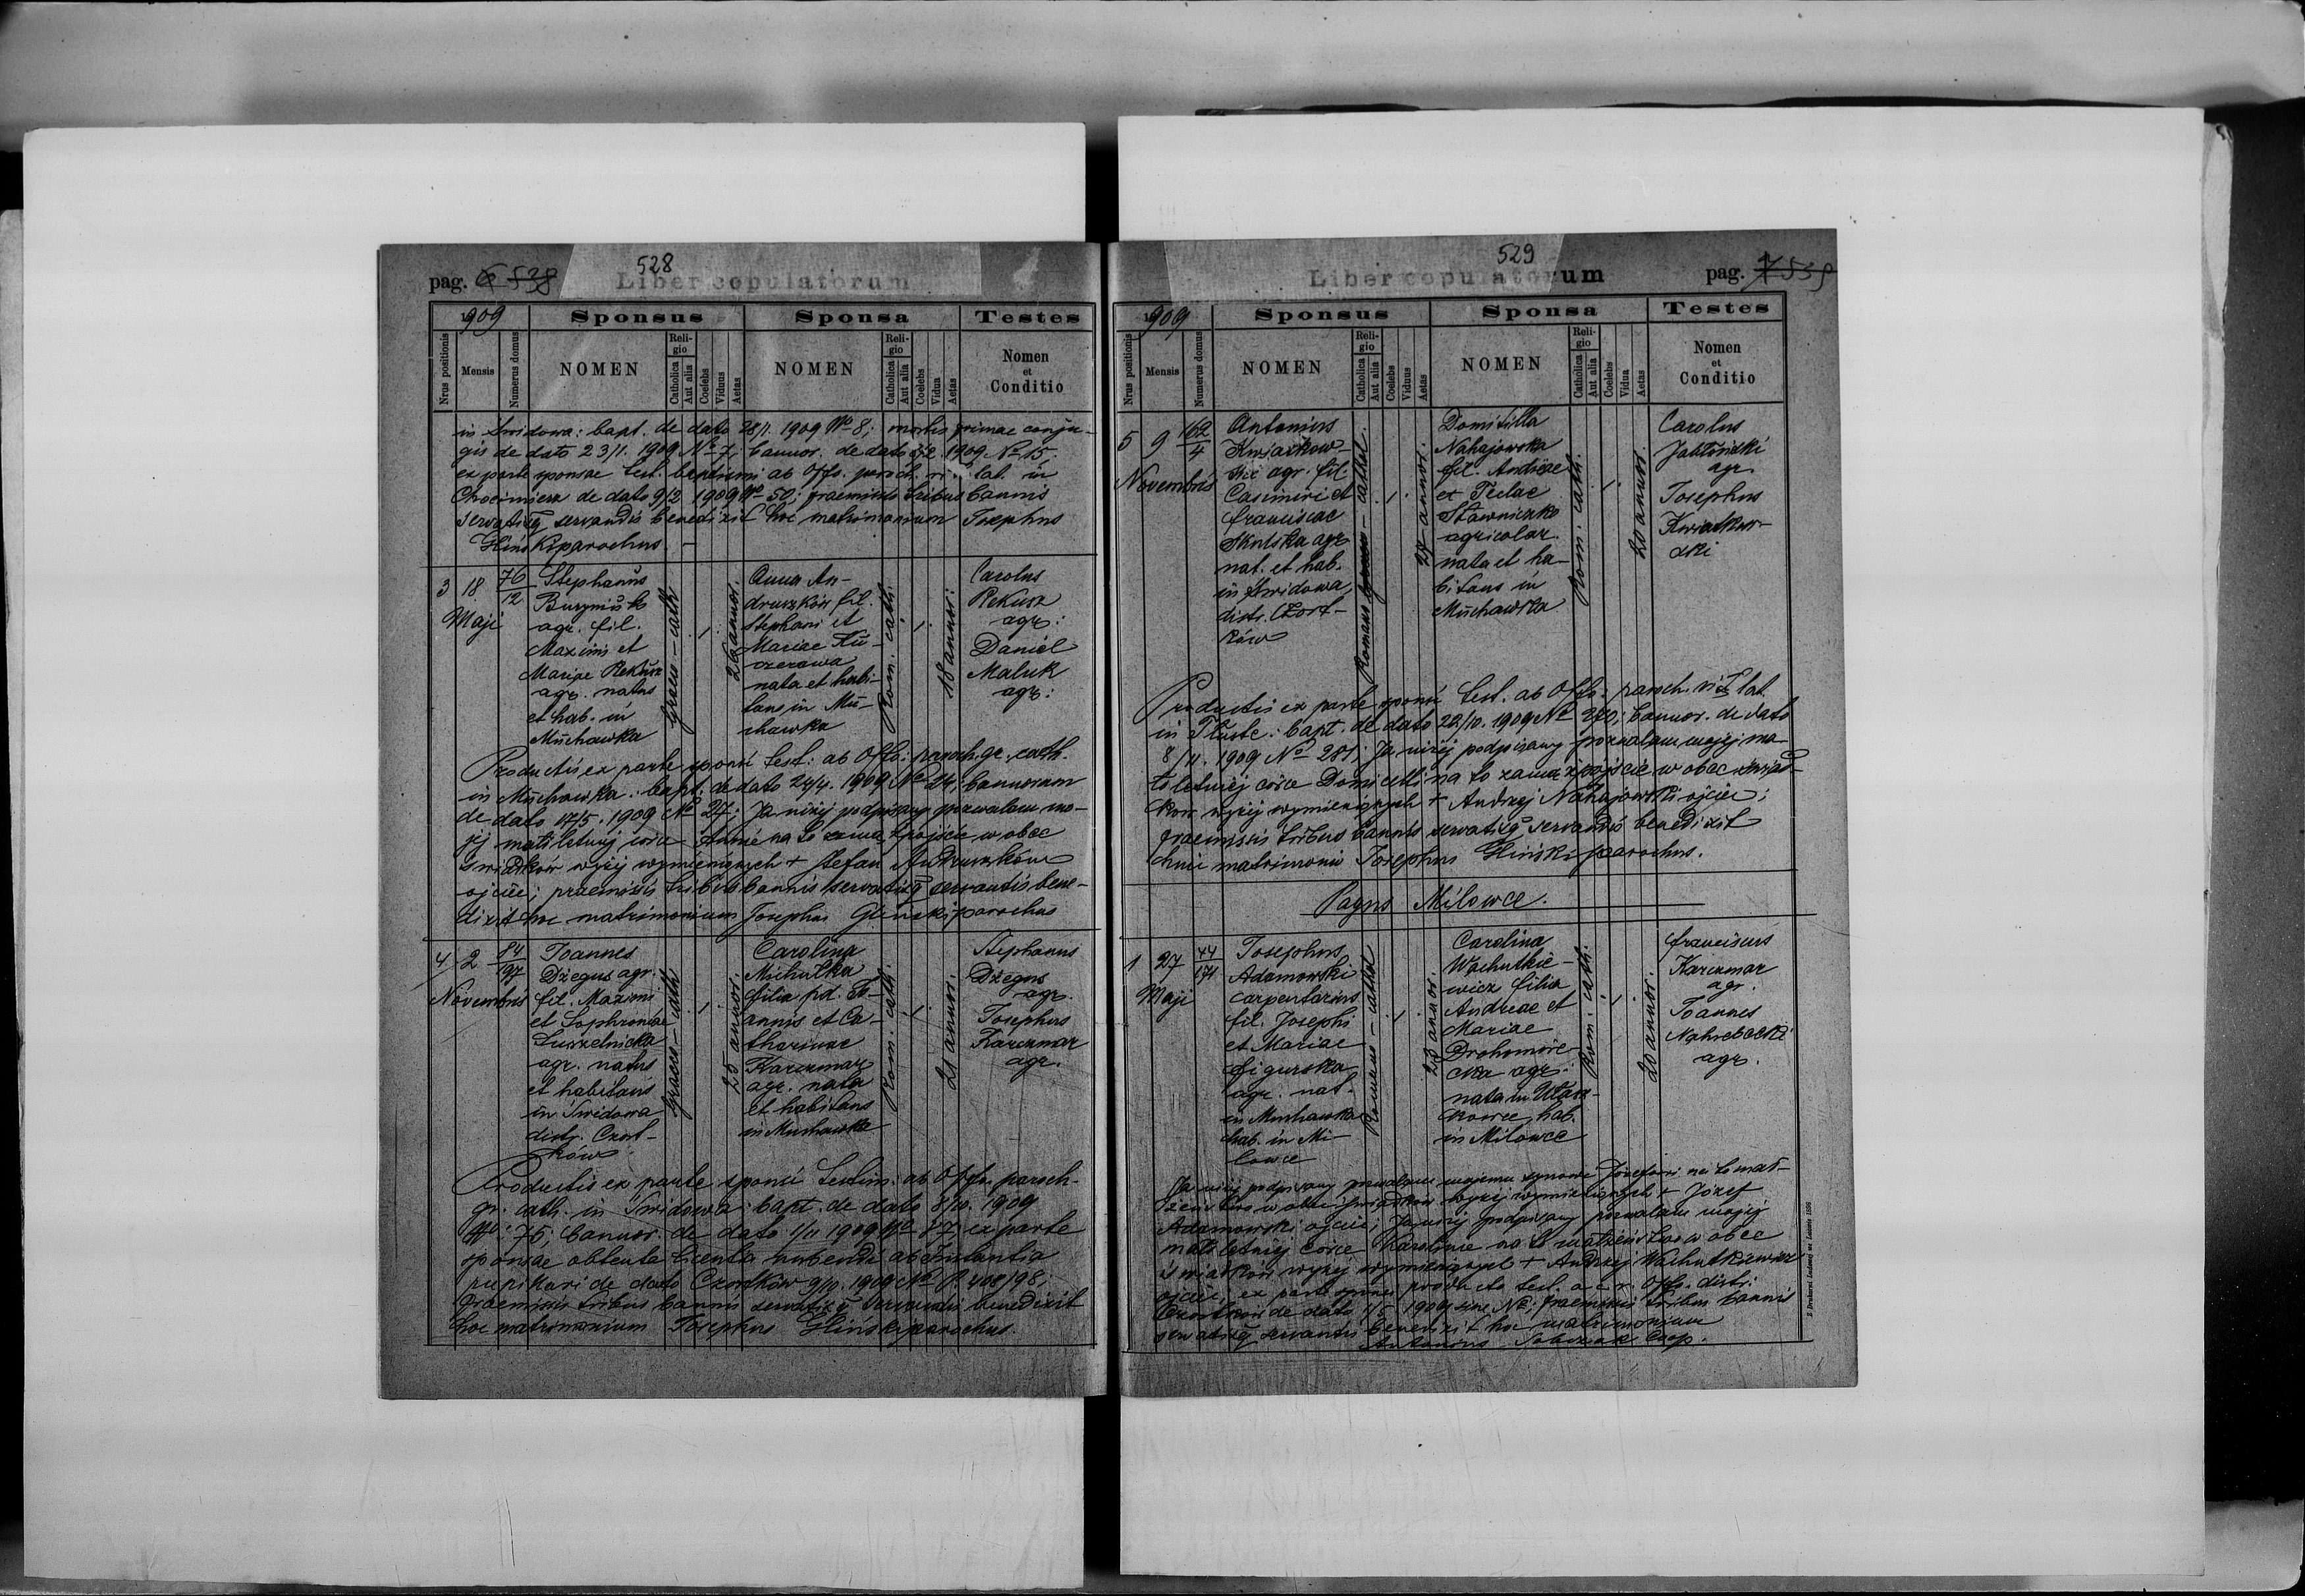 528
pag. 6 538
Liber copulatorum
1909
Sponsus
Sponsa
Testes
Nrus positionis
Mensis
Numerus domus
NOMEN
Religio
Catholica
Aut alia
Coelebs
Viduus
Aetas
NOMEN
Religio
Catholica
Aut alia
Coelebs
Vidua
Aetas
Nomen
et
Conditio
in Swidowa: bapt. de dato 28/1. 1909 No 8; mortis primae conju-
gis de dato 23/1. 1909 No 7; bannor. de dato 1909 No 15;
ex parte sponsae test. baptismi ab Offo. paroch. lat. in
Chocimierz de dato 9/2 1909 No 50; praemissis tribus bannis
servatisq servandis benedixit hoc matrimonium Josephus
Gliński parochus. -
3
18
76
12
Maji
Stephanus
agr. fil.
Maximi et
Mariae Rekusz
agr. natus
et hab. in
Muchawka
Graeco-cath
1
26 annor.
Anna An-
druszków fil.
Stephani et
Mariae Ku-
czerawa
nata et habi-
tans in Mu-
chawka
Rom. cath.
1
18 annor.
Carolus
Rekusz
agr:
Daniel
Maluk
agr:
Productis ex parte sponsi test: ab Offo: paroch. gr. cath.
in Muchawka: bapt. de dato 24/4. 1909 No 24; bannorum
de dato 17/5. 1909 No 27; Ja niżej podpisany pozwalam mo-
jej małoletniej córce Annie na to zamążpójście w obec
świadków wyżej wymienionych + Stefan Andruszków
ojciec; praemissis tribus bannis servatisq servandis bene-
dixit hoc matrimonium Josephus Gliński parochus
4
2
84
197
Novembris
Joannes
Dżegus agr.
fil. Maximi
et Sophroniae
Suszelnicka
agr. natus
et habitans
in Swidowa
distr. Czort-
ków
Graeco-cath
1
25 annor.
Carolina
Michułka
filia pd. Jo-
annis et Ca-
tharinae
Karczmarz
agr. nata
et habitans
in Muchawka
Rom. cath.
1
21 annor.
Stephanus
Dżegus
agr.
Josephus
Karczmar
agr.
Productis ex parte sponsi testim: ab Offo. paroch.
gr. cath. in Swidowa: bapt. de dato 8/10. 1909
No: 75; bannor. de dato 1/11 1909 No 87; ex parte
sponsae obtenta licentia nubendi ab Instantia
pupillari de dato Czortków 9/10. 1909 No P. 408/98;
praemissis tribus bannis servatisq servandis benedixit
hoc matrimonium Josephus Gliński parochus.
529
Liber copulatorum
pag. 7 539
1909
Sponsus
Sponsa
Testes
Nrus positionis
Mensis
Numerus domus
NOMEN
Religio
Catholica
Aut alia
Coelebs
Viduus
Aetas
NOMEN
Religio
Catholica
Aut alia
Coelebs
Vidua
Aetas
Nomen
et
Conditio
5
9
162
4
Novembris
Antonius
Kwiatkow-
ski agr. fil.
Casimiri et
Franciscae
Skulska agr
nat. et hab.
in Swidowa
distr. Czort-
ków
cathol.
1
27 annor.
Domitilla
Nahajowska
fil. Andreae
et Teclae
Stawniczko
agricolar.
nata et ha-
bitans in
Muchawka
Rom. cath.
1
20 annor.
Carolus
Jabłoński
agr
Josephus
Kwiatkow-
ski
Productis ex parte sponsi test. ab Offo. paroch. rit lat.
in Tłuste: bapt. de dato 22/10. 1909 No 270; bannor. de dato
8/11. 1909 No 281; Ja niżej podpisany pozwalam mojej ma-
łoletniej córce Domicelli na to zamążpójście w obec świad-
ków wyżej wymienionych + Andrzej Nahajowski ojciec;
praemissis tribus bannis servatisq servandis benedixit
huic matrimonio Josephus Gliński parochus.
Pagus Milowce.
1
27
44
171
Maji
Josephus
Adamowski
carpentarius
fil. Josephi
et Mariae
Figurska
agr. nat.
in Muchawka
hab. in Mi-
lowce
Romano-cathol
1
23 annor.
Carolina
Wachutkie-
wicz filia
Andreae et
Mariae
Drohomire-
cka agr.
nata in Ułasz-
kowce, hab.
in Milowce
Rom. cath.
1
20 annor.
Franciscus
Karczmar
agr.
Joannes
Nahrebecki
agr.
Ja niżej podpisany pozwalam mojemu synowi Józefowi na to mał-
żeństwo w obec świadków wyżej wymienionych + Józef
Adamowski ojciec; Ja niżej podpisany pozwalam mojej
małoletniej córce Karolinie na to małżeństwo w obec
świadków wyżej wymienionych + Andrzej Wachutkiewicz
ojciec; ex parte sponsi producto test. a c. r. Offo. distr:
Czortków de dato 1/5 1909 sine No; praemissis tribus bannis
servatisq servandis benedixit hoc matrimonium
Antonius Sobczak Coop.
Z Drukarni Ludowej we Lwowie 1896